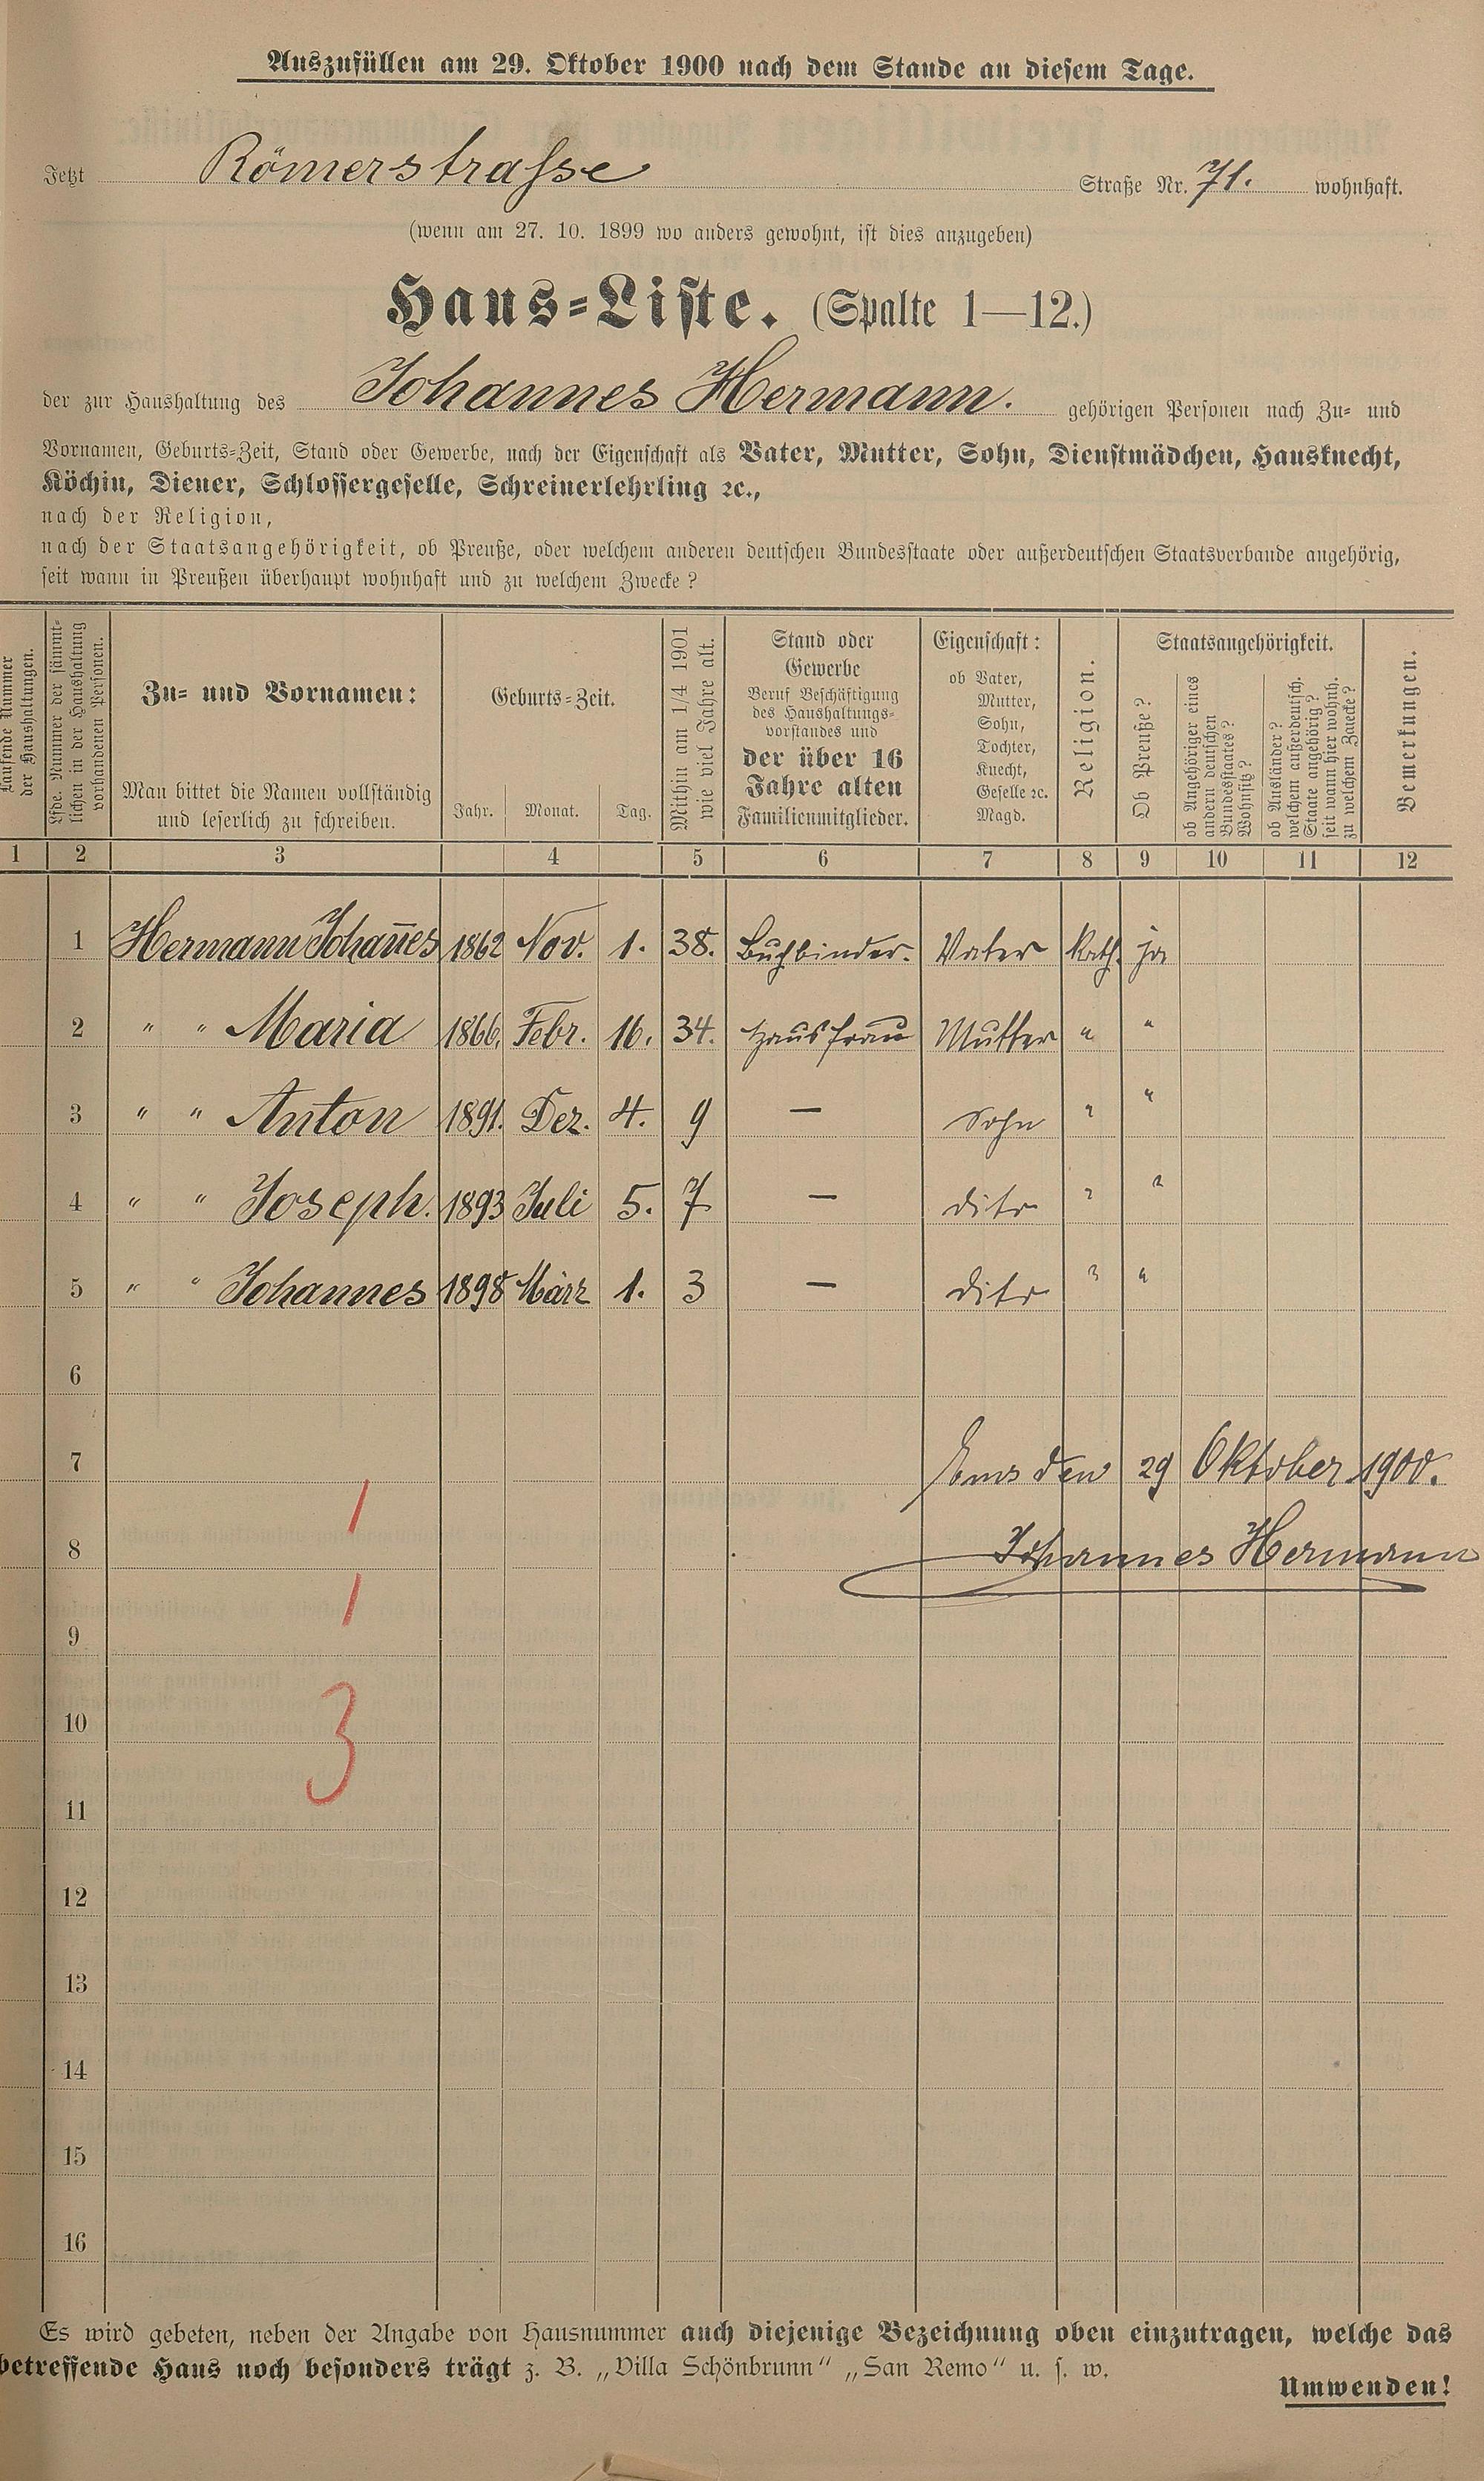 Auszufüllen am 29. Oktober 1900 nach dem Stande an diesem Tage.
Jetzt Römerstrasse Straße Nr. 71. wohnhaft.
(wenn am 27. 10. 1899 wo anders gewohnt, ist dies anzugeben)
Haus=Liste. (Spalte 1—12.)
der zur Haushaltung des Johannes Hermann. gehörigen Personen nach Zu= und
Vornamen, Geburts=Zeit, Stand oder Gewerbe, nach der Eigenschaft als Vater, Mutter, Sohn, Dienstmädchen, Hausknecht,
Köchin, Diener, Schlossergeselle, Schreinerlehrling ꝛc.,
nach der Religion,
nach der Staatsangehörigkeit, ob Preuße, oder welchem anderen deutschen Bundesstaate oder außerdeutschen Staatsverbande angehörig,
seit wann in Preußen überhaupt wohnhaft und zu welchem Zwecke?
Laufende Nummer
der Haushaltungen.
Lfde. Nummer der sämmt=
lichen in der Haushaltung
vorhandenen Personen.
Zu= und Vornamen:
Man bittet die Namen vollständig
und leserlich zu schreiben.
Geburts=Zeit.
Jahr. Monat. Tag.
Mithin am 1/4 1901
wie viel Jahre alt.
Stand oder
Gewerbe
Beruf Beschäftigung
des Haushaltungs=
vorstandes und
der über 16
Jahre alten
Familienmitglieder.
Eigenschaft:
ob Vater,
Mutter,
Sohn,
Tochter,
Knecht,
Geselle ꝛc.
Magd.
Religion.
Staatsangehörigkeit.
Ob Preuße?
ob Angehöriger eines
andern deutschen
Bundesstaates?
Wohnsitz?
ob Ausländer?
welchem außerdeutsch.
Staate angehörig?
seit wann hier wohnh.
zu welchem Zwecke?
Bemerkungen.
1 2 3 4 5 6 7 8 9 10 11 12
1 Hermann Johan̅es 1862 Nov. 1. 38. Buchbinder. Vater kath. ja
2 " " Maria 1866. Febr. 16. 34. Hausfrau Mutter " "
3 " " Anton 1891. Dez. 4. 9 — Sohn " "
4 " " Joseph. 1893 Juli 5. 7 — dito " "
5 " " Johannes 1898 März 1. 3 — dito " "
6
7 Ems den 29 Oktober 1900.
1
8 Johannes Hermann
1
9
3
10
11
12
13
14
15
16
Es wird gebeten, neben der Angabe von Hausnummer auch diejenige Bezeichnung oben einzutragen, welche das
betreffende Haus noch besonders trägt z. B. „Villa Schönbrunn“ „San Remo“ u. s. w.
Umwenden!